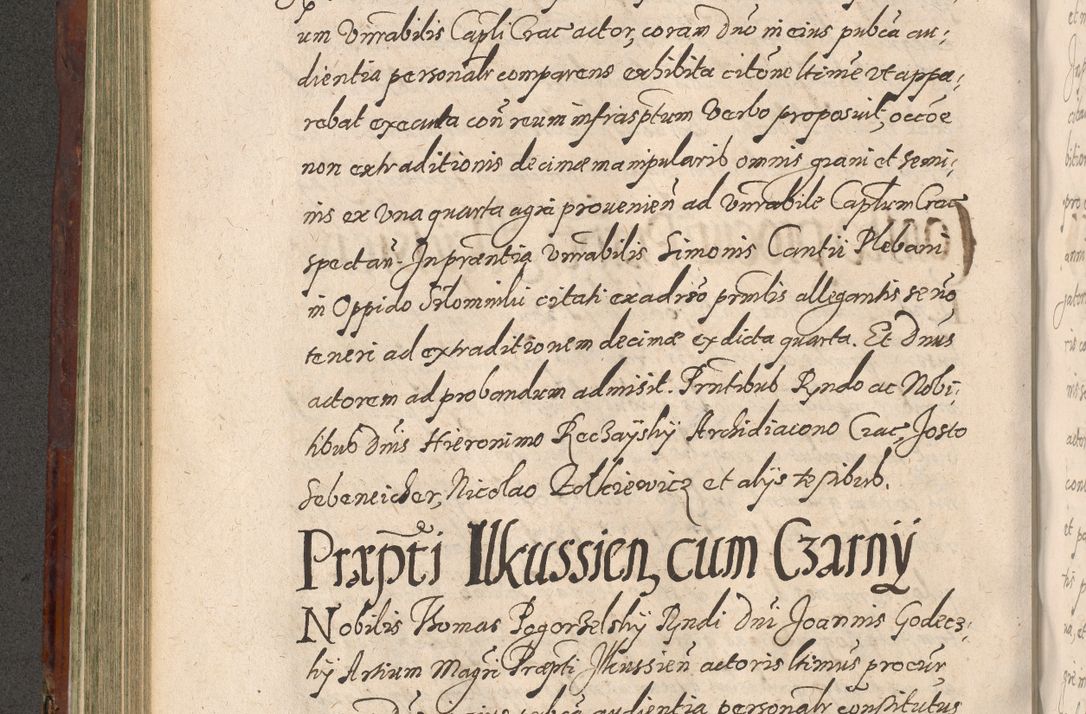 um Vnrabilis Capli Crac actor, coram dno in eius pubca au-
dientia personalr comparens exhibita citone ltime vt appa-
rebat executa con reum infrasptum Verbo proposuit, occoe
non extraditionis decimæ manipularib omnis grani et semi-
nis ex Vna quarta agri prouenien ad Vnrabile Caplum Crac
spectan. In præntia Vnrabilis Simonis Cantii Plebani
in Oppido citati ex adrso prntis allegantis se no
teneri ad extraditionem decimæ ex dicta quarta. Et Dnus
actorem ad probandum admisit. Prntibus Rndo ac Nobi-
libus Dnis Hieronimo Reczayski Archidiacono Crac, Josto
Sebeneicher, Nicolao Zolkiewicz et alijs testibus.
Præpti Ilkussien, cum Czarnÿ
Nobilis Thomas Pogorzelskÿ Rndi Dni Joannis Godecz-
kÿ Artium Magri Præpti Jlkussien actoris ltimus procur
personalr constitutus